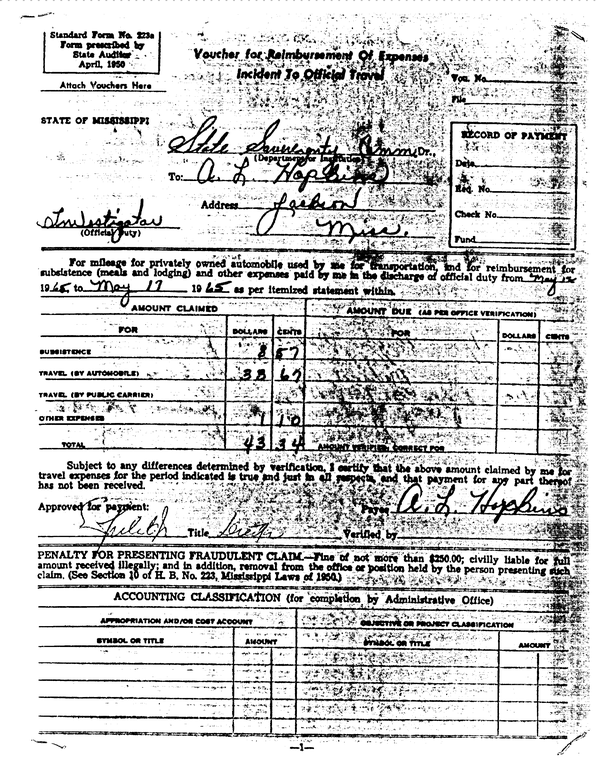 Standard Form No. 223a
Form prescribed by
State Auditor
April, 1950
Attach Vouchers Here
Voucher for Reimbursement Of Expenses
Incident To Official Travel
Vou. No.
File
STATE OF MISSISSIPPI
State Sovereignty Comm. Dr.
(Department or Institution)
To: A. L. Hopkins
Address Jackson
Miss.
Investigator
(Official Duty)
RECORD OF PAYMENT
Date
Req. No.
Check No.
Fund
For mileage for privately owned automobile used by me for transportation, and for reimbursement for
subsistence (meals and lodging) and other expenses paid by me in the discharge of official duty from May 12
1965 to May 17 1965 as per itemized statement within.
AMOUNT CLAIMED AMOUNT DUE (AS PER OFFICE VERIFICATION)
FOR DOLLARS CENTS FOR DOLLARS CENTS
SUBSISTENCE 57
TRAVEL (BY AUTOMOBILE) 67
TRAVEL (BY PUBLIC CARRIER)
OTHER EXPENSES 1 10
TOTAL 43 34 AMOUNT VERIFIED; CORRECT FOR
Subject to any differences determined by verification, I certify that the above amount claimed by me for
travel expenses for the period indicated is true and just in all respects, and that payment for any part thereof
has not been received.
Approved for payment: Payee A. L. Hopkins
Title Verified by
PENALTY FOR PRESENTING FRAUDULENT CLAIM.—Fine of not more than $250.00; civilly liable for full
amount received illegally; and in addition, removal from the office or position held by the person presenting such
claim. (See Section 10 of H. B. No. 223, Mississippi Laws of 1950.)
ACCOUNTING CLASSIFICATION (for completion by Administrative Office)
APPROPRIATION AND/OR COST ACCOUNT OBJECTIVE OR PROJECT CLASSIFICATION
SYMBOL OR TITLE AMOUNT SYMBOL OR TITLE AMOUNT
—1—